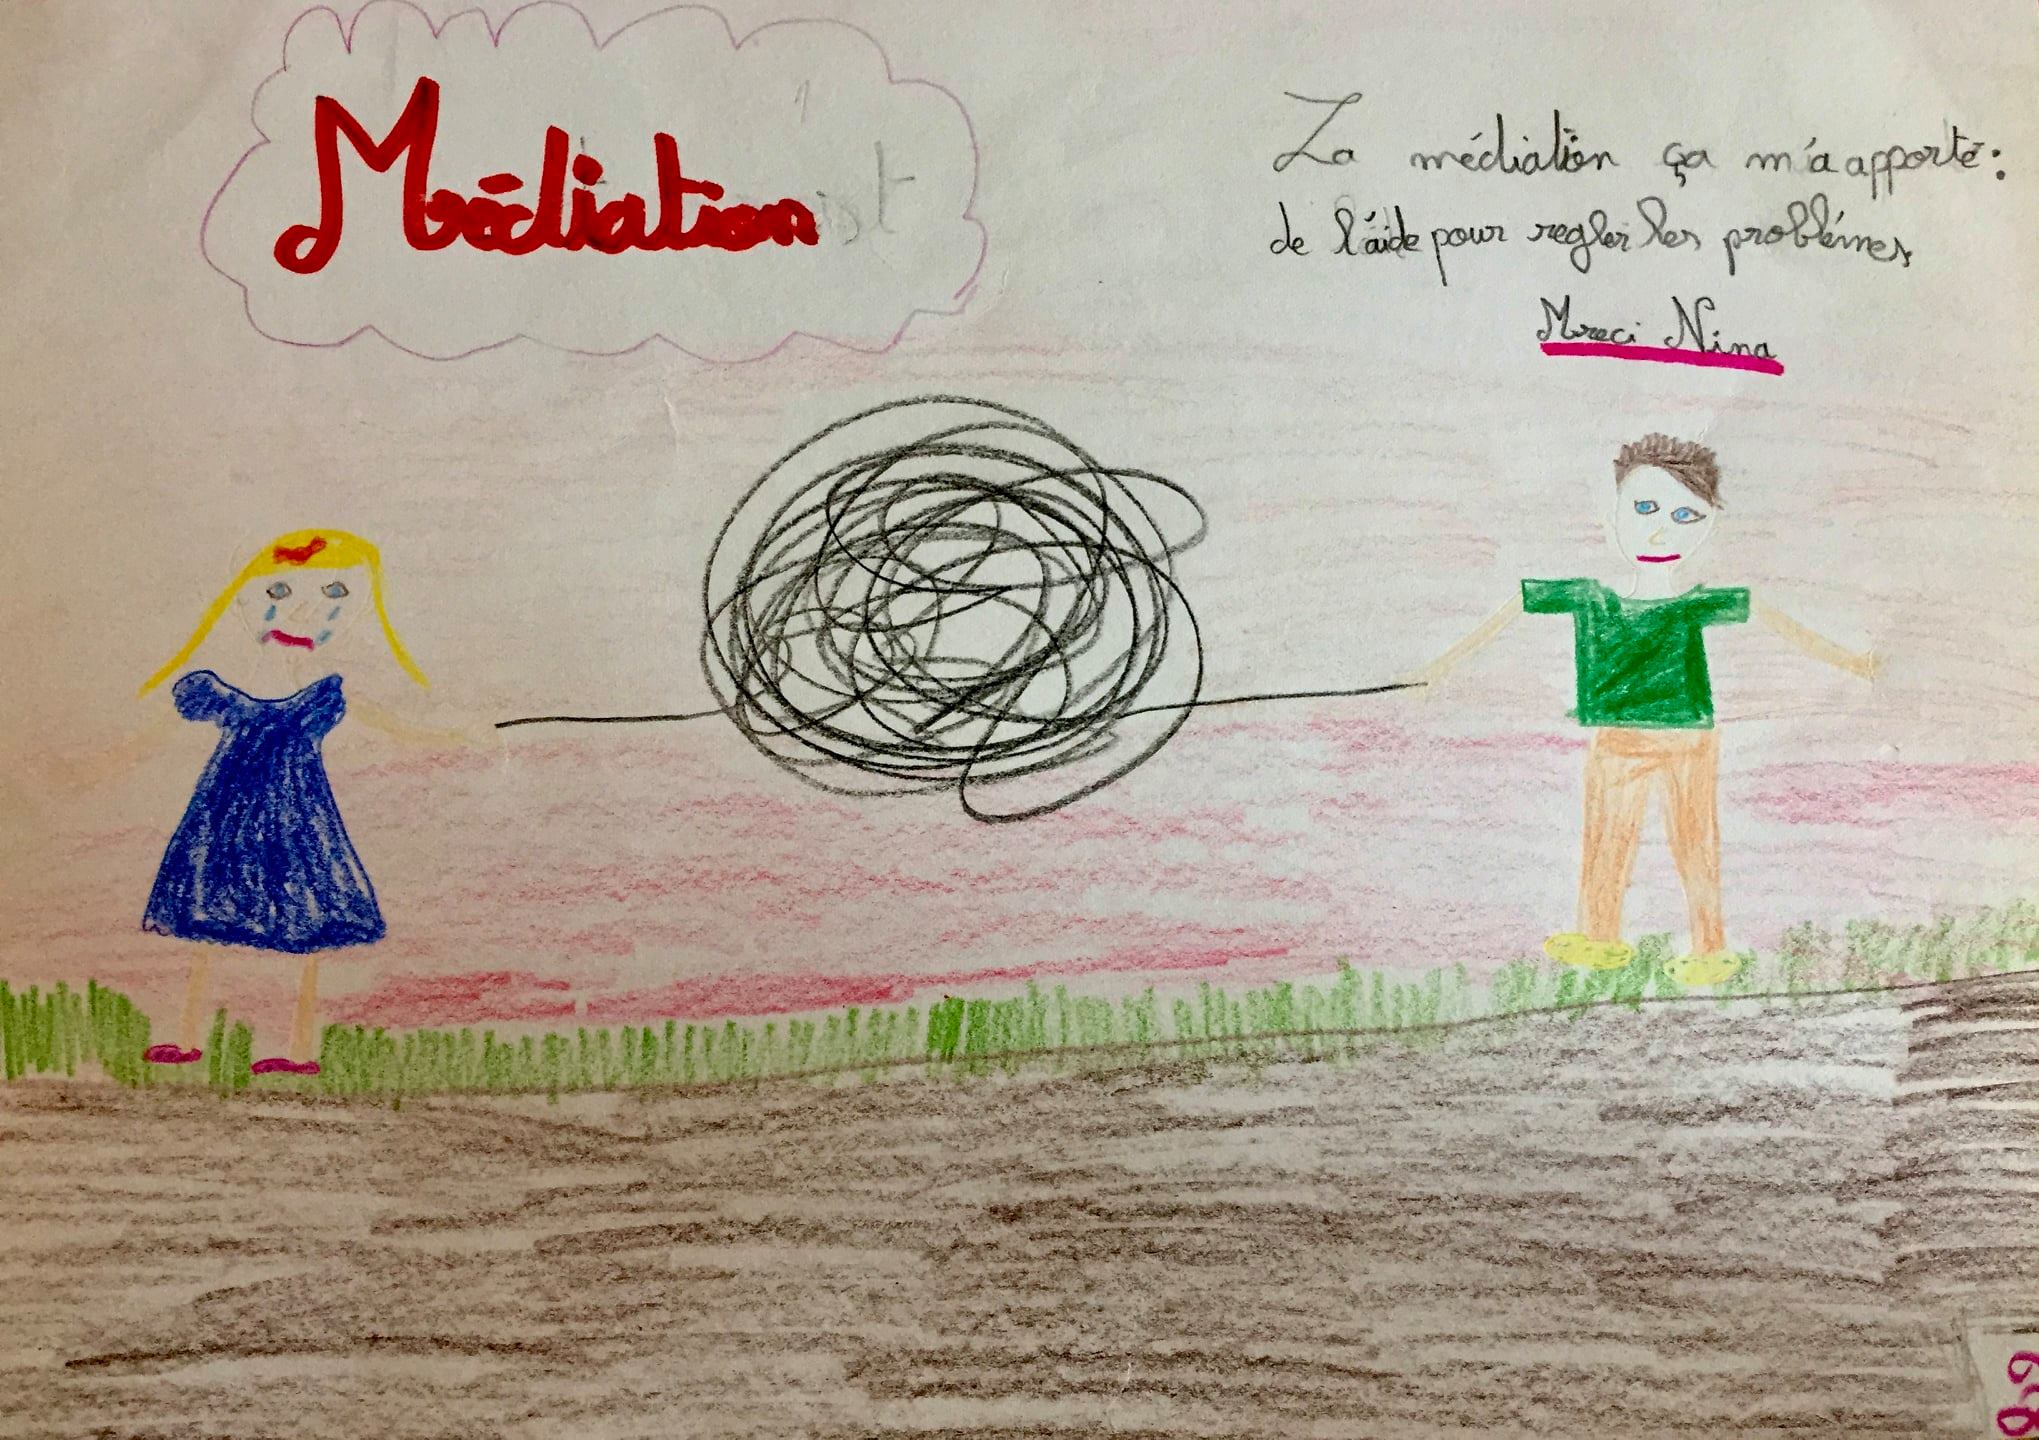 Médiation
La médiation ça m'a apporté :
de l'aide pour regler les problémes
Mreci Nina